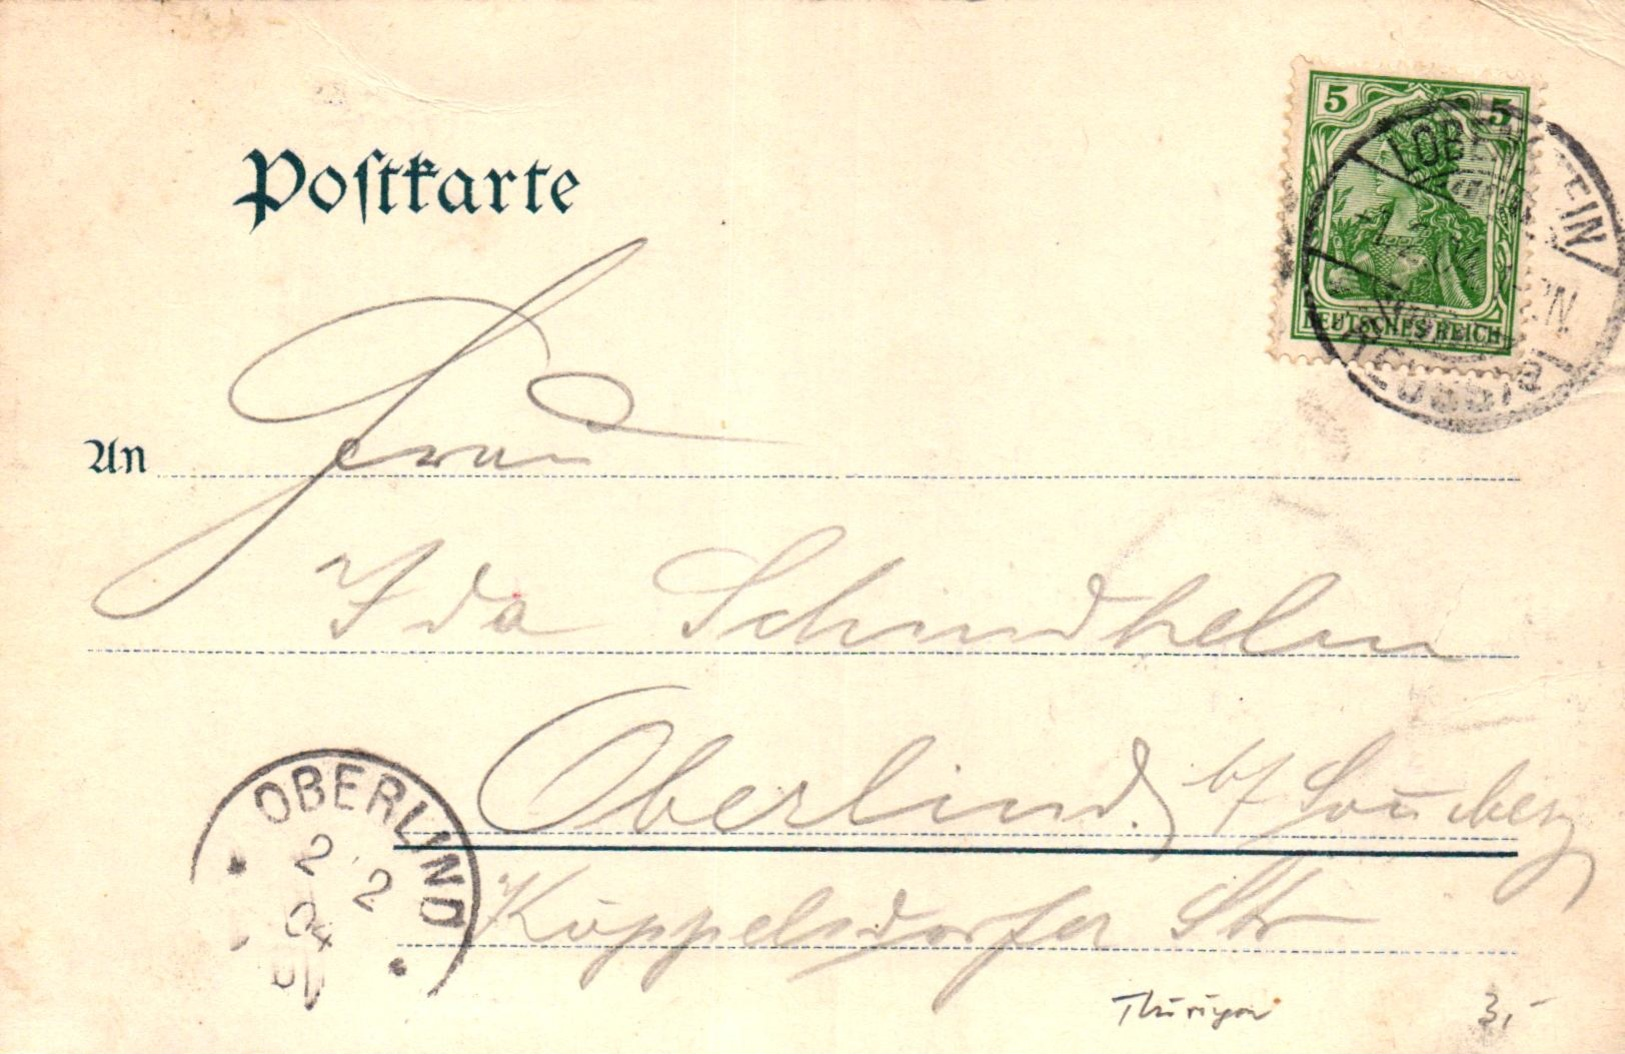 Postkarte
5 5
LOBENSTEIN
DEUTSCHES REICH
(REUSS)
An Frau
Ida Schmidhelm
Oberlind b/ Sonneberg
Köppelsdorfer Str
OBERLIND
2 2
04
Thüringen 3,-